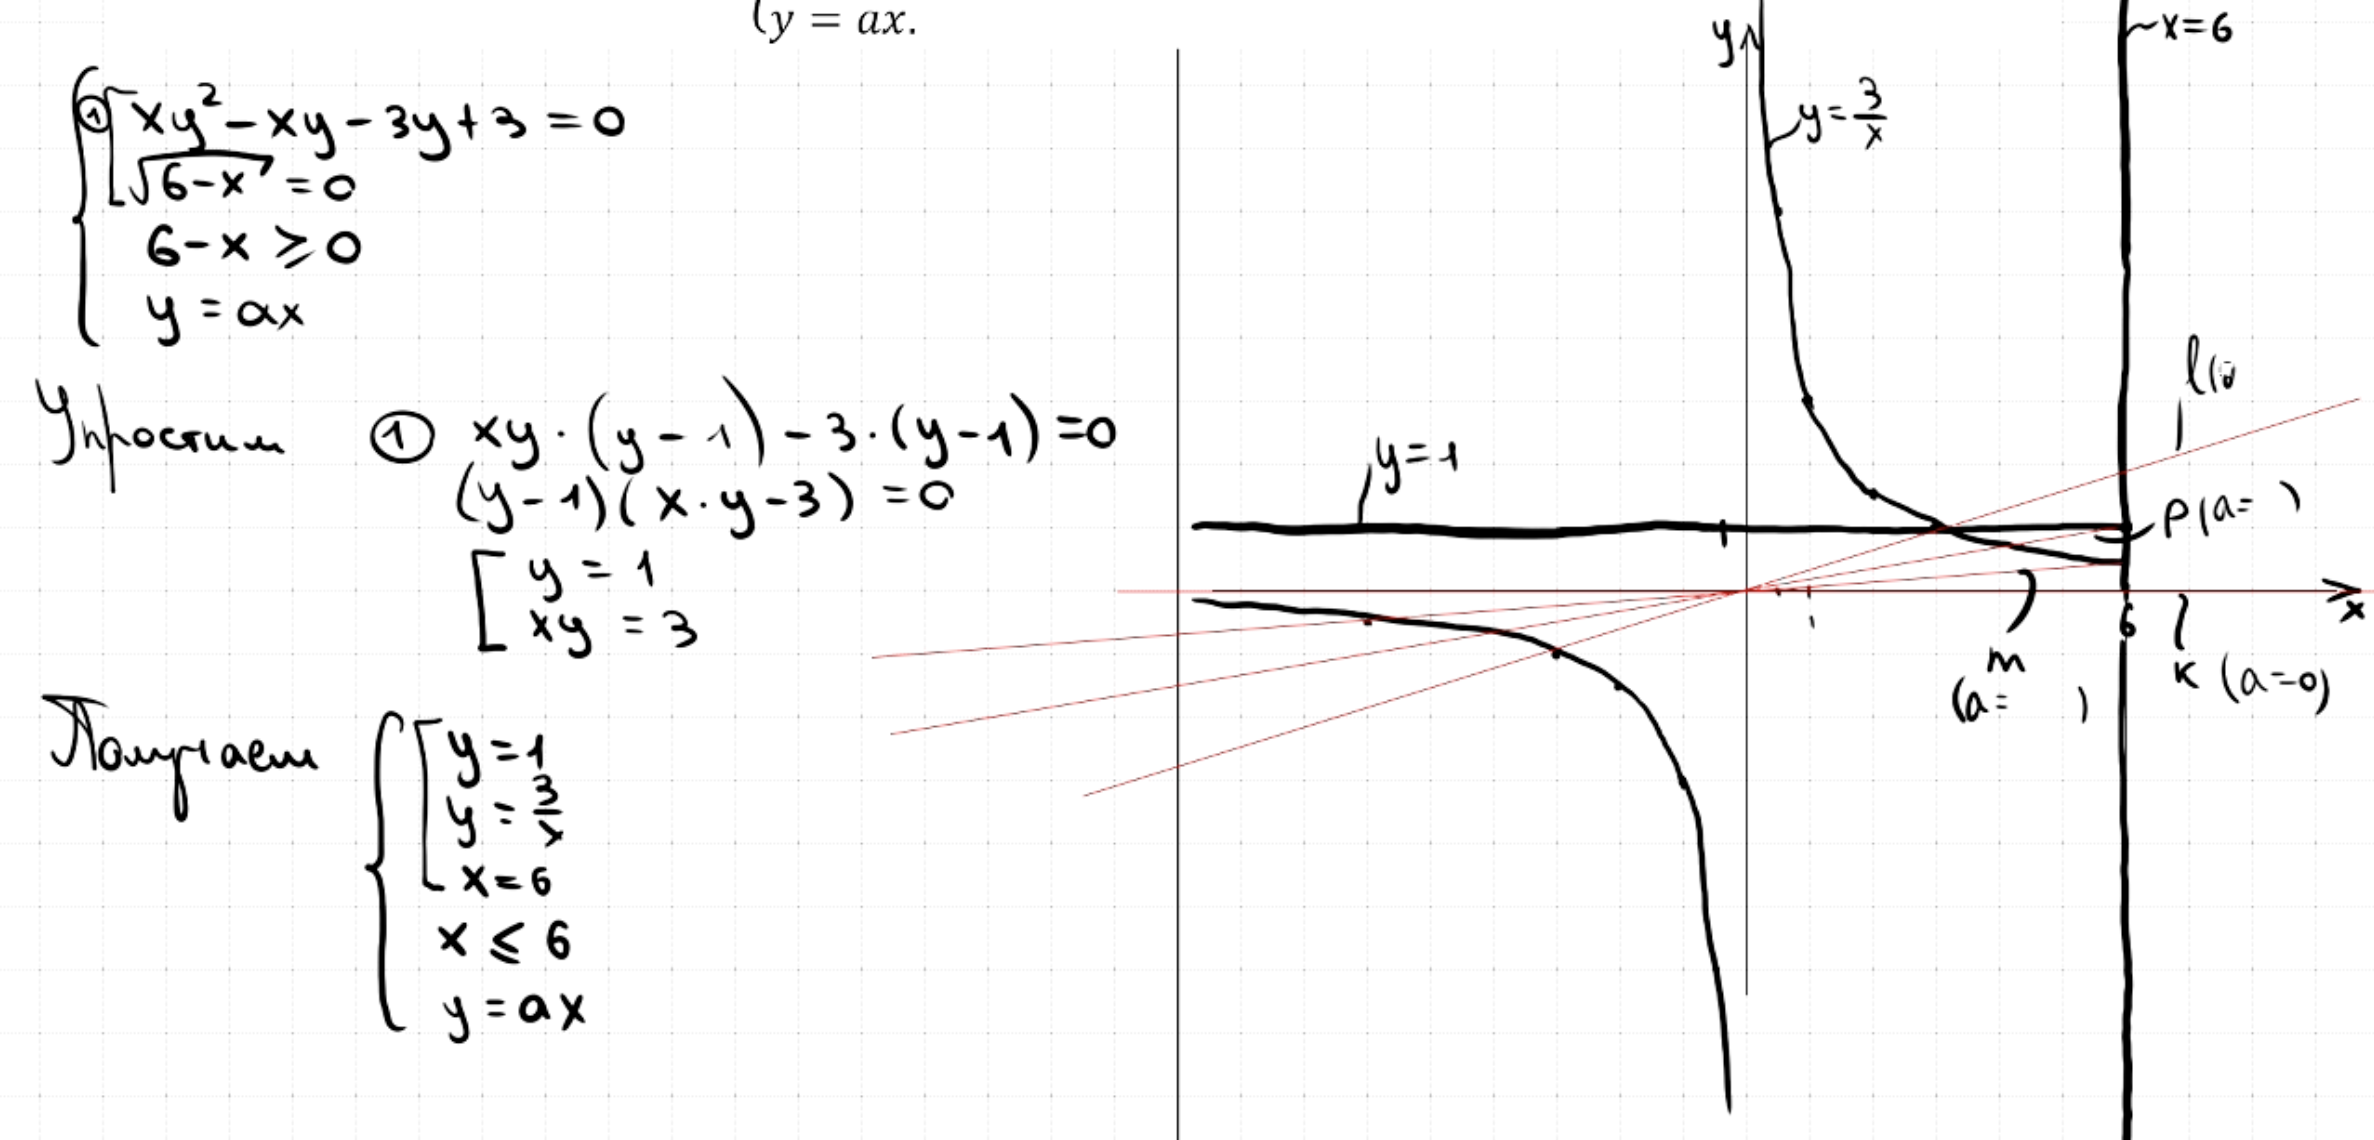 (y = ax.
① xy² - xy - 3y + 3 = 0
√(6-x) = 0
6 - x ⩾ 0
y = ax
Упростим ① xy · (y - 1) - 3 · (y - 1) = 0
(y - 1)(x · y - 3) = 0
y = 1
xy = 3
Получаем
y = 1
y = 3/x
x = 6
x ⩽ 6
y = ax
y
x = 6
y = 3/x
y = 1
P (a= )
x
6
m
(a= )
к (a=0)